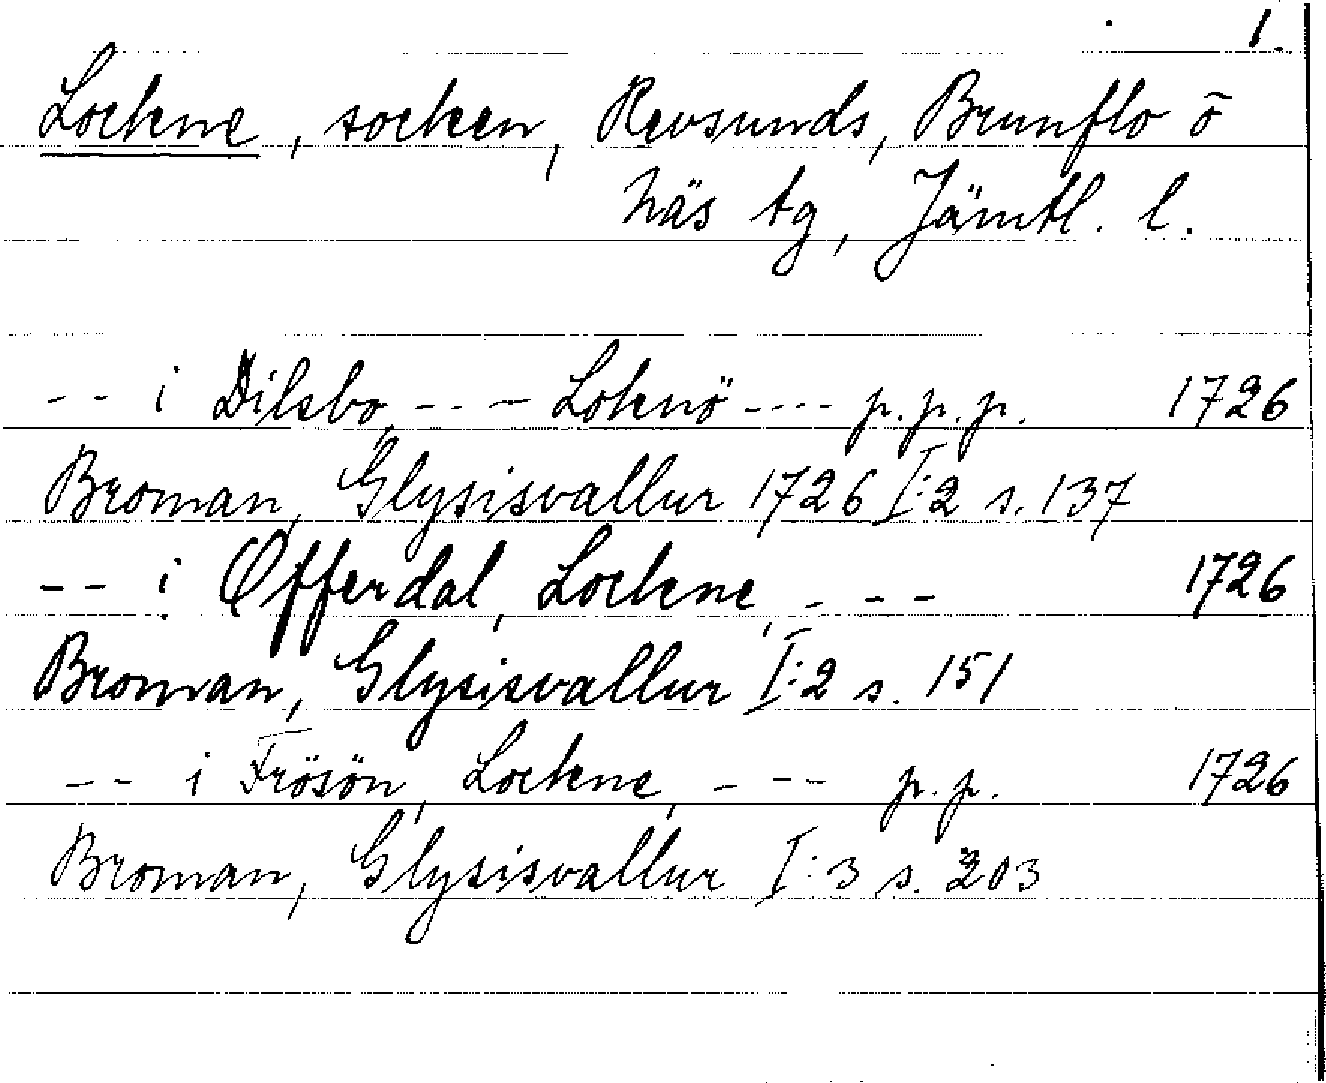 1.
Lockne, socken, Revsunds, Brunflo o
Näs tg, Jämtl. l.
-- i Dilsbo, --- Loknö ---- p.p.p. 1726
Broman, Glysisvallur 1726 I:2 s. 137
-- i Offerdal, Lockne, --- 1726
Broman, Glysisvallur I:2 s. 151
-- i Frösön, Lockne, --- p.p. 1726
Broman, Glysisvallur I:3 s. 203